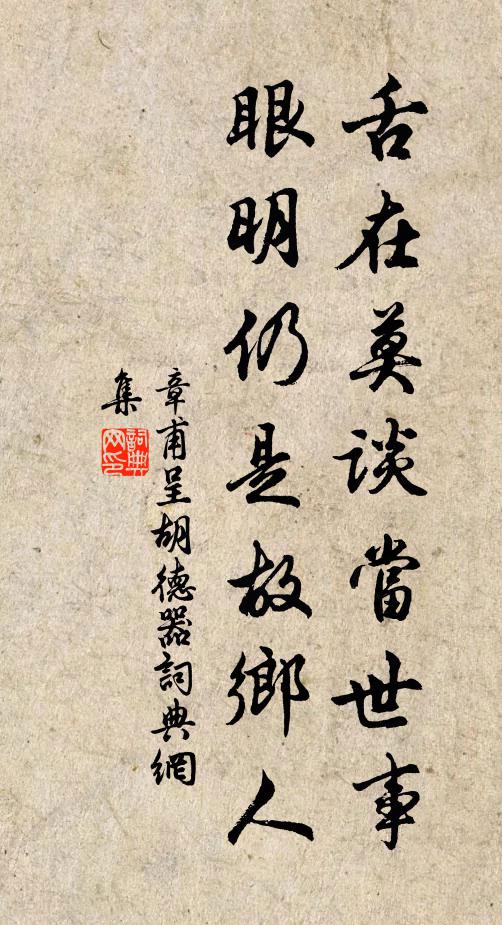 舌在莫談當世事
眼明仍是故鄉人
章甫呈胡德器詞典網
集
詞典
网印